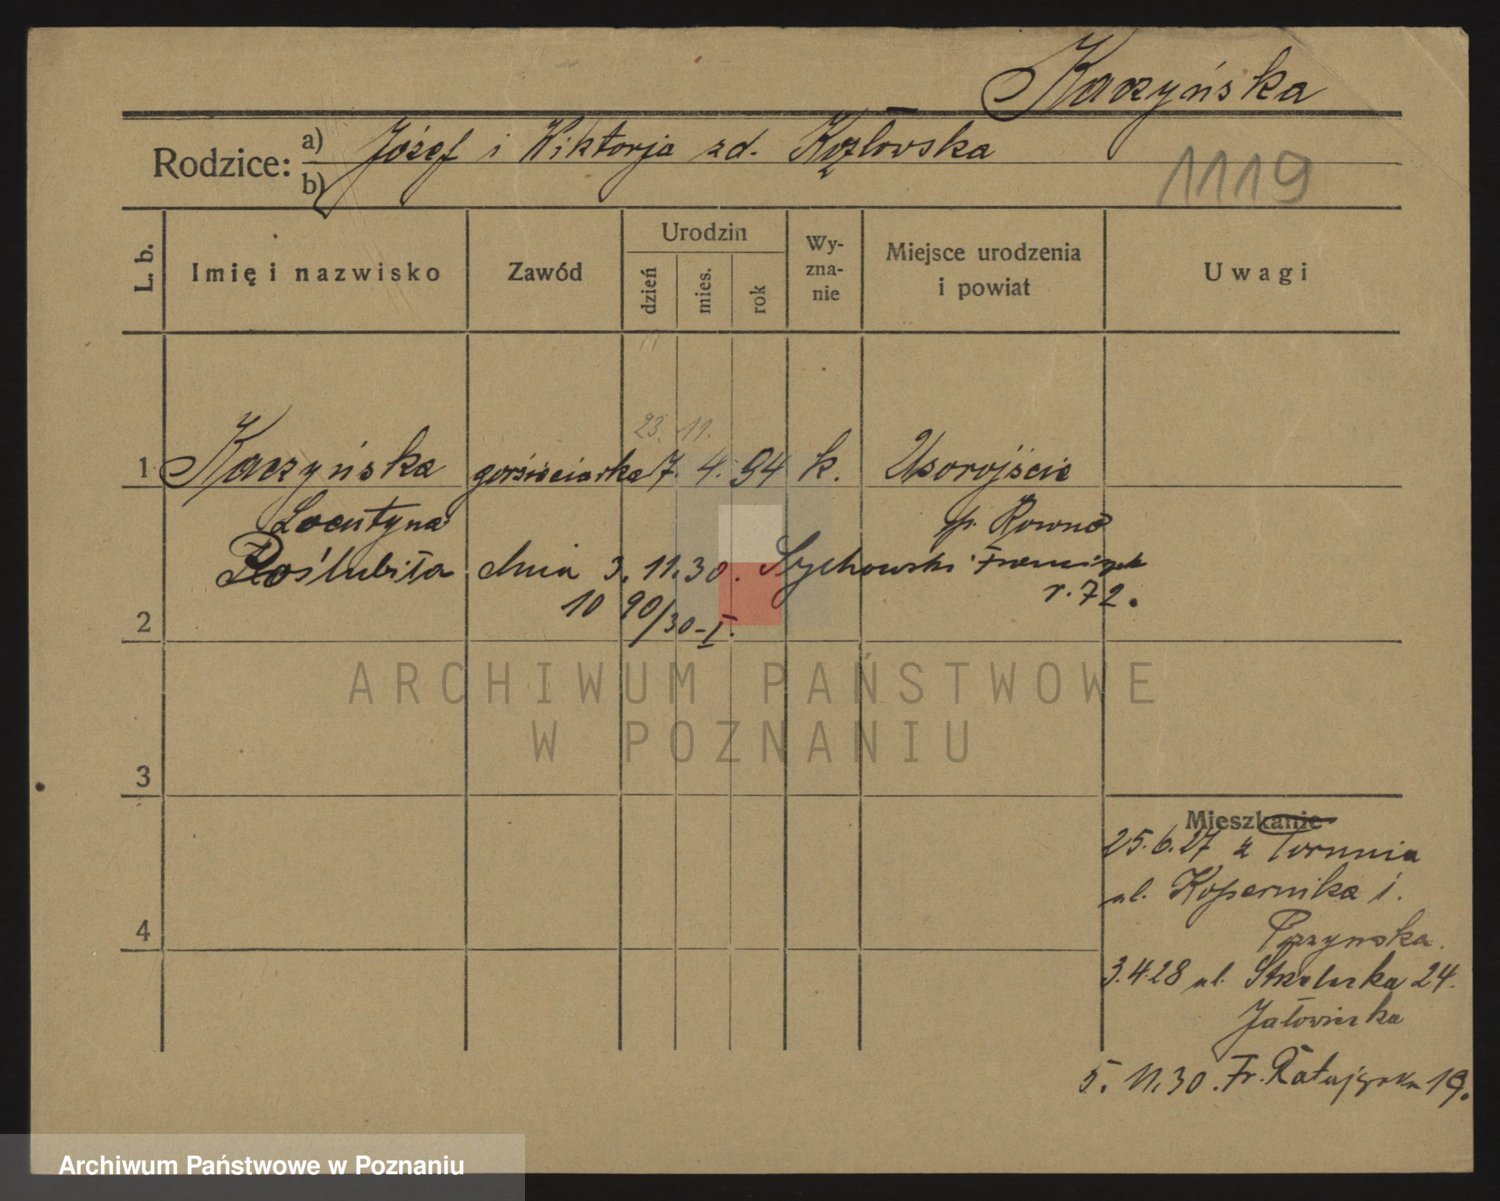 Kaczyńska
Rodzice: a) Józef i Wiktorja zd. Kozłovska
b)
1119
L. b.
Imię i nazwisko
Zawód
Urodzin
dzień
mies.
rok
Wy-
zna-
nie
Miejsce urodzenia
i powiat
Uwagi
11
23. 11.
1 Kaczyńska gorseciarka 7. 4. 94 k.
p. Rowno
Poślubiła dnia 3. 11. 30. Szychowski
r. 72.
10 90/30-I.
2
ARCHIWUM PAŃSTWOWE
W POZNANIU
3
Mieszkanie
25.6.27 z Torunia
ul. Kopernika 1.
4
3.4.28 ul. Strzelecka 24.
5. 11. 30. Fr. Ratajczaka 19.
Archiwum Państwowe w Poznaniu